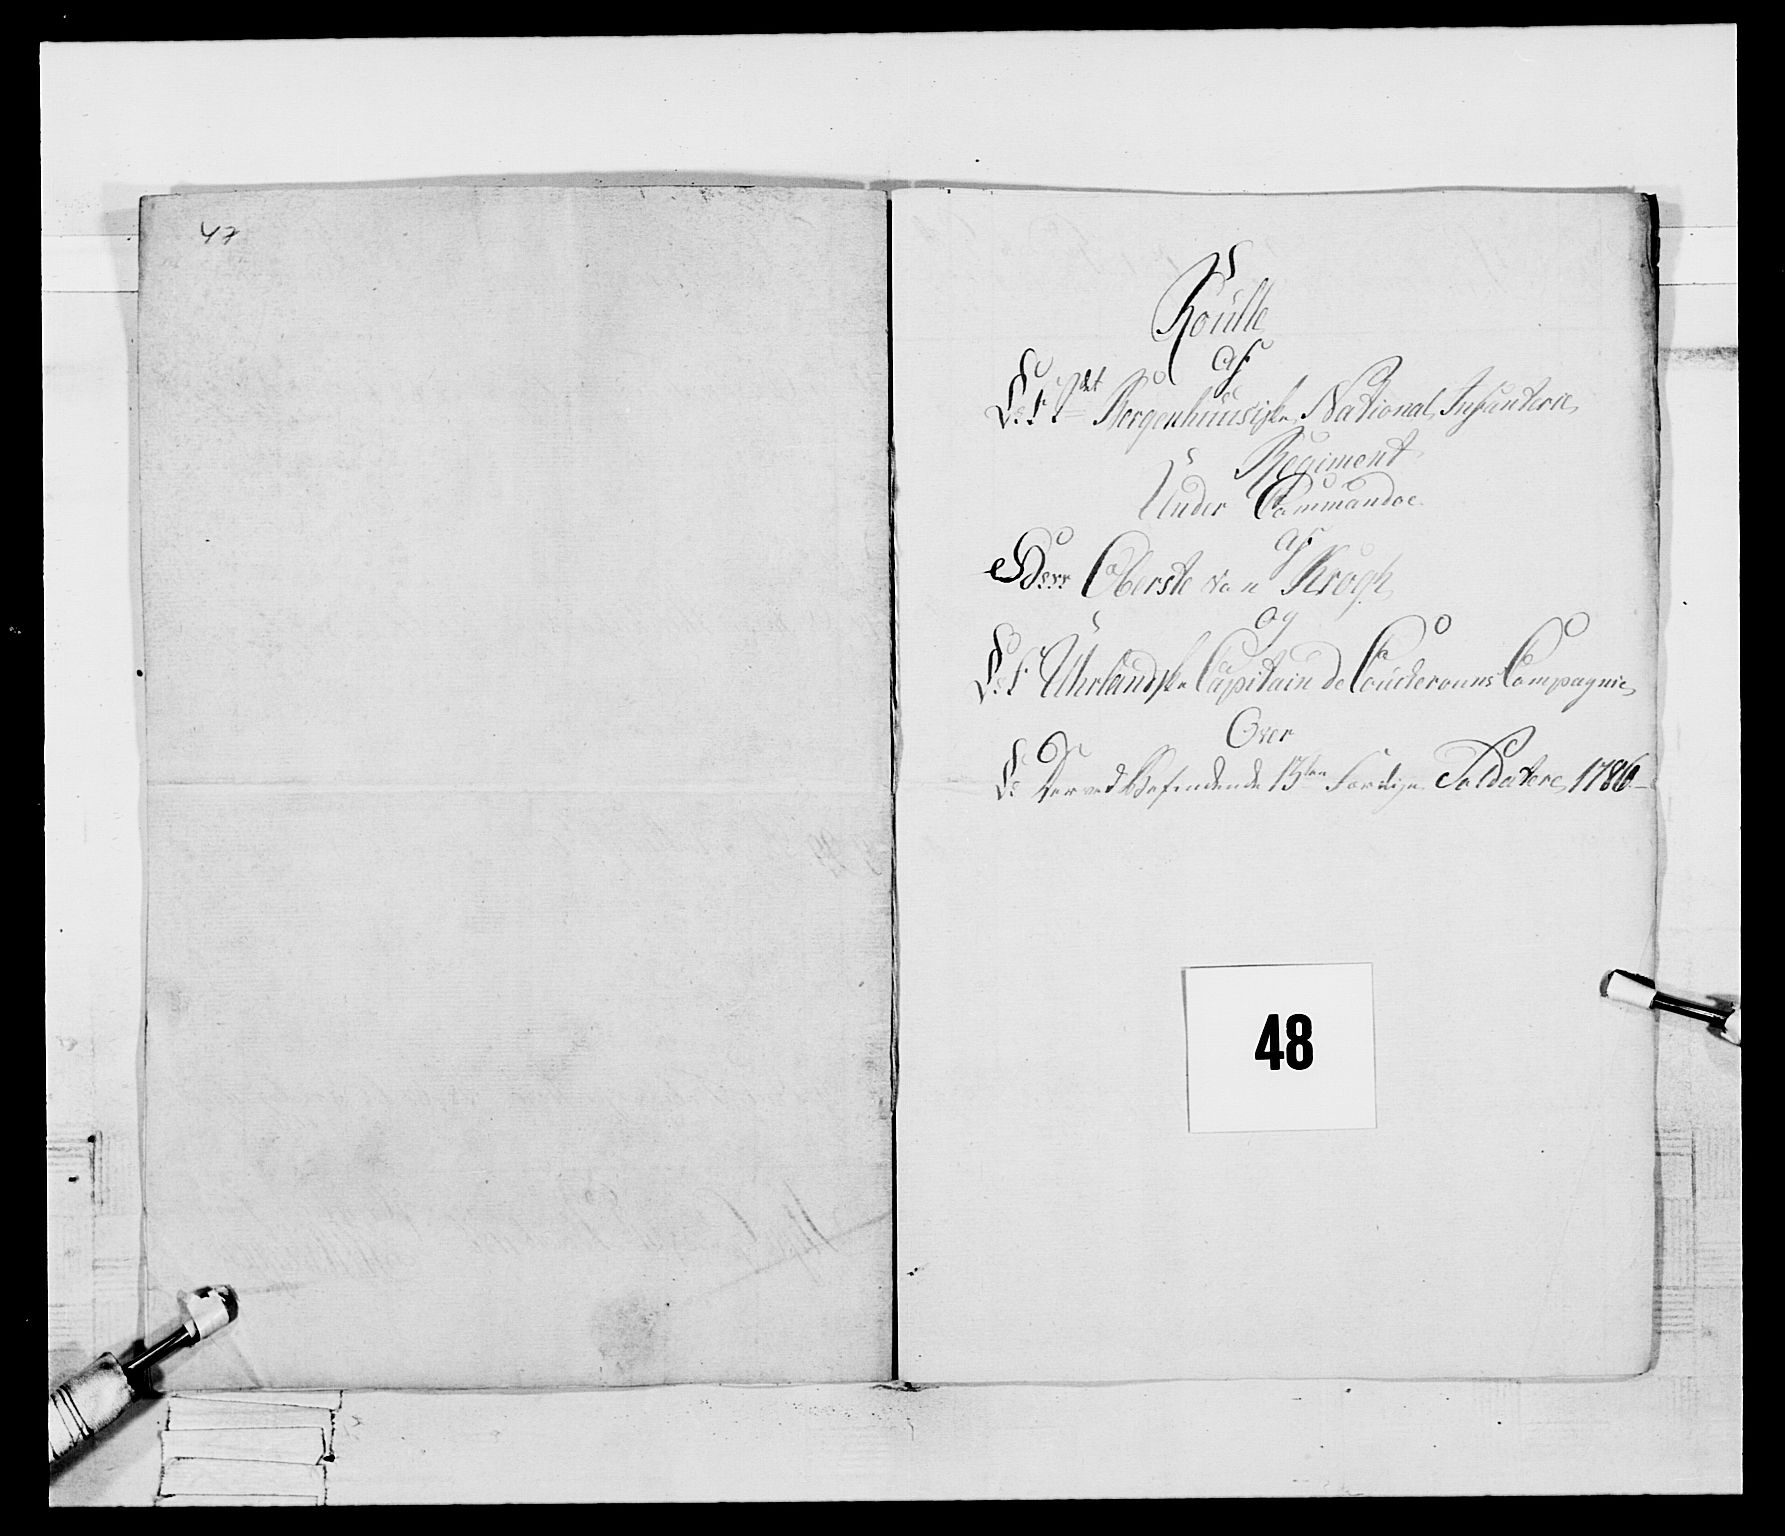 47
Roulle
af
Det 1ste Bergenhuusiske National Infanterie
Regiment
Under Commandoe
af
Herr Oberste von Krogh
og
Det Uhrlandske Capitain de Coucherouns Compagnie
Over
De Derved Befindende 13ten Færdige Soldatere 1786
48